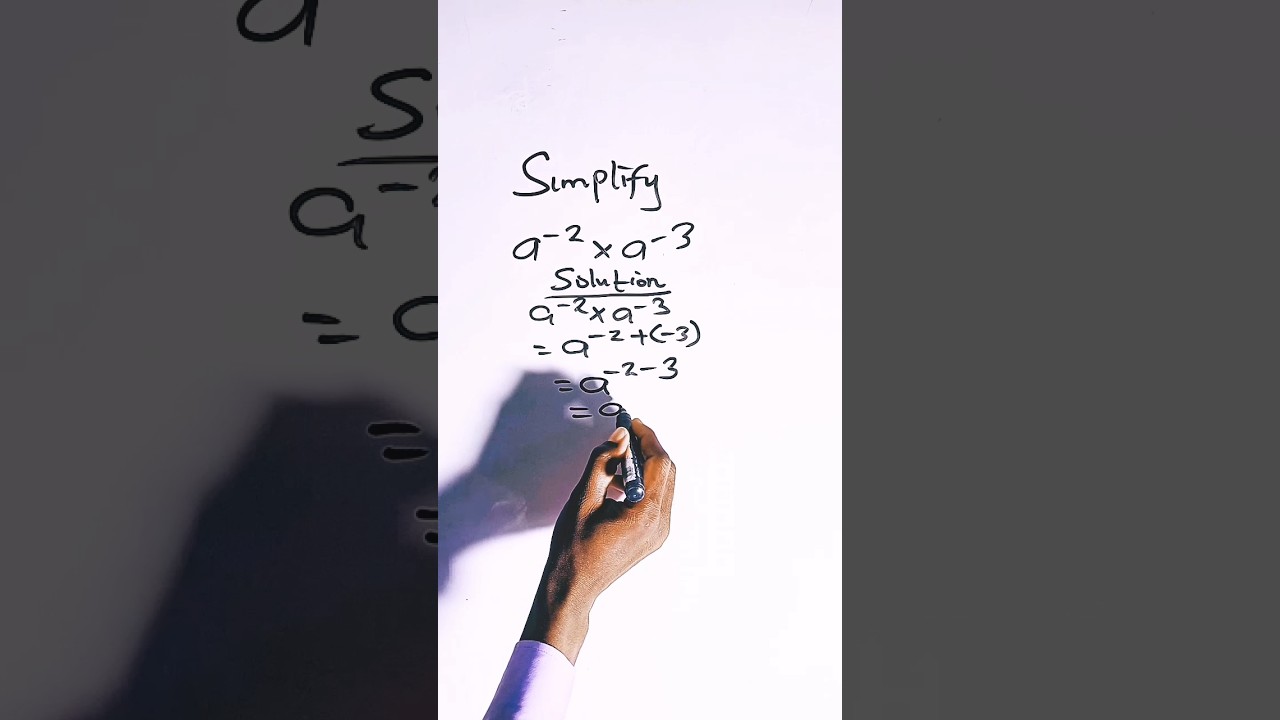 Simplify
a⁻² × a⁻³
Solution
a⁻² × a⁻³
= a⁻²⁺⁽⁻³⁾
= a⁻²⁻³
= a